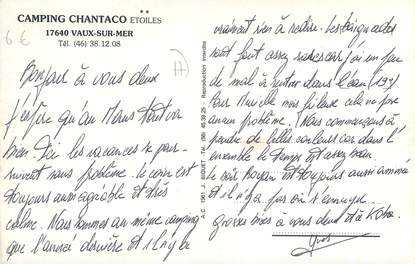 CAMPING CHANTACO ** ETOILES
17640 VAUX-SUR-MER
Tél. (46) 38.12.08
6€
Bonjour à vous deux
J'espère qu'au Mans tout va
bien. Ici les vacances se pour-
suivent sans problème. le coin est
toujours aussi agréable et très
calme. Nous sommes au même camping
que l'année dernière et il n'y a
A.C. 1981 J. BIGUET - Tél. 46.39.25 - Reproduction interdite
vraiment rien à redire. Les baignades
sont fait assez rares car j'ai un peu
de mal à rentrer dans l'eau (19°)
Pour Murielle mes filles cela ne pose
aucun problème. Nous commençons à
prendre de belles couleurs car dans l'
ensemble le temps est assez beau.
le soir Royan est toujours aussi animé
et il n'y a pas où s'ennuyer.
grosses bises à vous deux et à
Yves